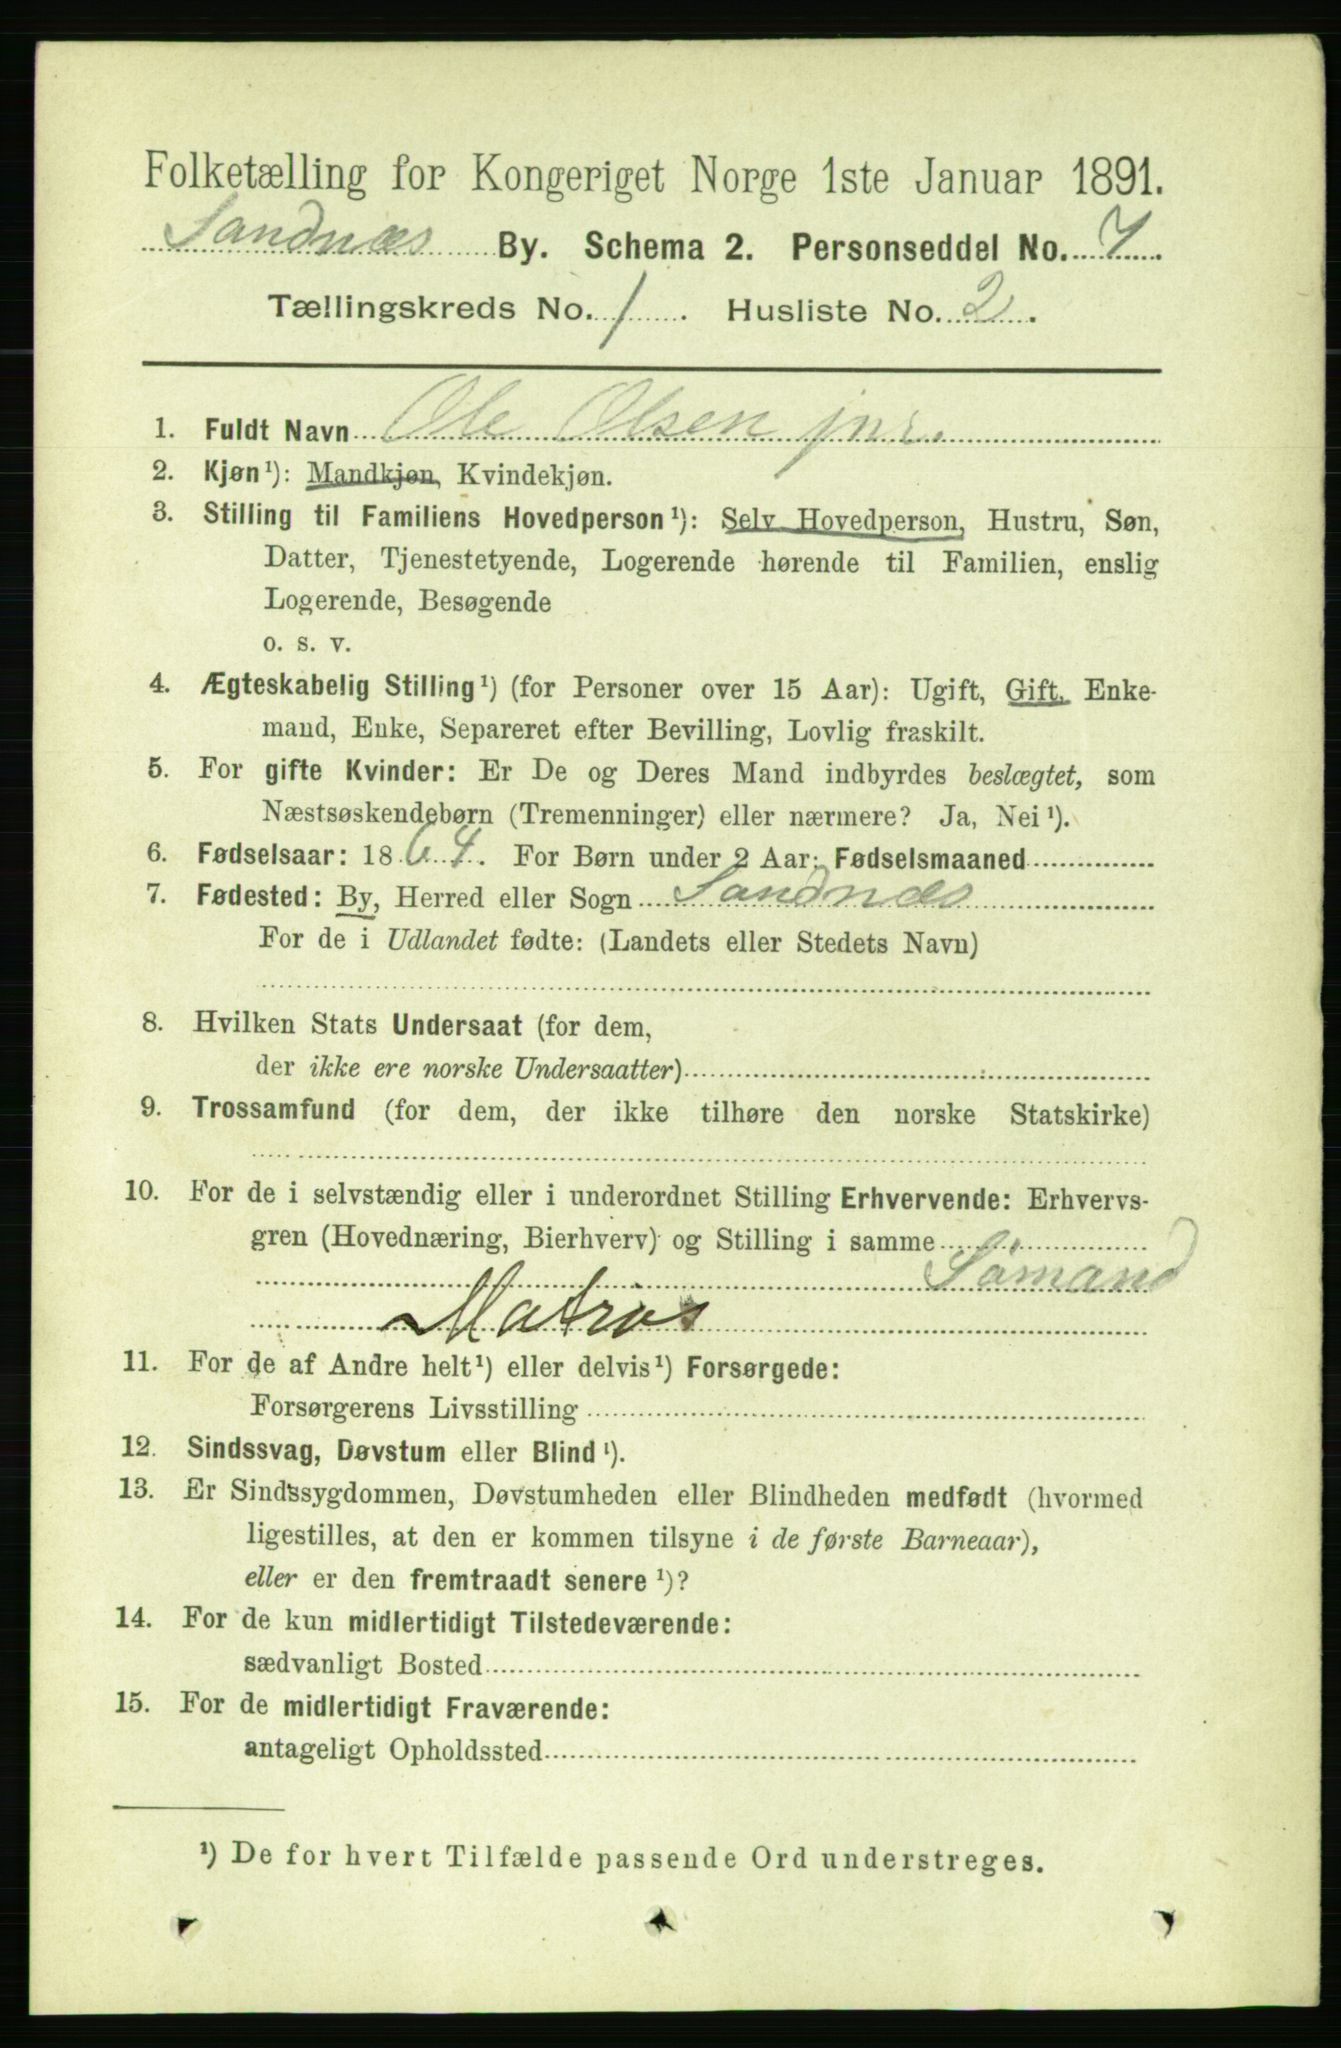 Folketælling for Kongeriget Norge 1ste Januar 1891.
Sandnæs By. Schema 2. Personseddel No. 7.
Tællingskreds No. 1. Husliste No. 2.
1. Fuldt Navn Ole Olsen jnr.
2. Kjøn¹): Mandkjøn, Kvindekjøn.
3. Stilling til Familiens Hovedperson¹): Selv Hovedperson, Hustru, Søn,
Datter, Tjenestetyende, Logerende hørende til Familien, enslig
Logerende, Besøgende
o. s. v.
4. Ægteskabelig Stilling¹) (for Personer over 15 Aar): Ugift, Gift, Enke-
mand, Enke, Separeret efter Bevilling, Lovlig fraskilt.
5. For gifte Kvinder: Er De og Deres Mand indbyrdes beslægtet, som
Næstsøskendebørn (Tremenninger) eller nærmere? Ja, Nei¹).
6. Fødselsaar: 1864. For Børn under 2 Aar: Fødselsmaaned
7. Fødested: By, Herred eller Sogn Sandnæs
For de i Udlandet fødte: (Landets eller Stedets Navn)
8. Hvilken Stats Undersaat (for dem,
der ikke ere norske Undersaatter)
9. Trossamfund (for dem, der ikke tilhøre den norske Statskirke)
10. For de i selvstændig eller i underordnet Stilling Erhvervende: Erhvervs-
gren (Hovednæring, Bierhverv) og Stilling i samme
Sömand
Matros
11. For de af Andre helt¹) eller delvis¹) Forsørgede:
Forsørgerens Livsstilling
12. Sindssvag, Døvstum eller Blind¹).
13. Er Sindssygdommen, Døvstumheden eller Blindheden medfødt (hvormed
ligestilles, at den er kommen tilsyne i de første Barneaar),
eller er den fremtraadt senere¹)?
14. For de kun midlertidigt Tilstedeværende:
sædvanligt Bosted
15. For de midlertidigt Fraværende:
antageligt Opholdssted
¹) De for hvert Tilfælde passende Ord understreges.